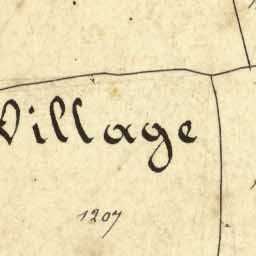 Village
1207